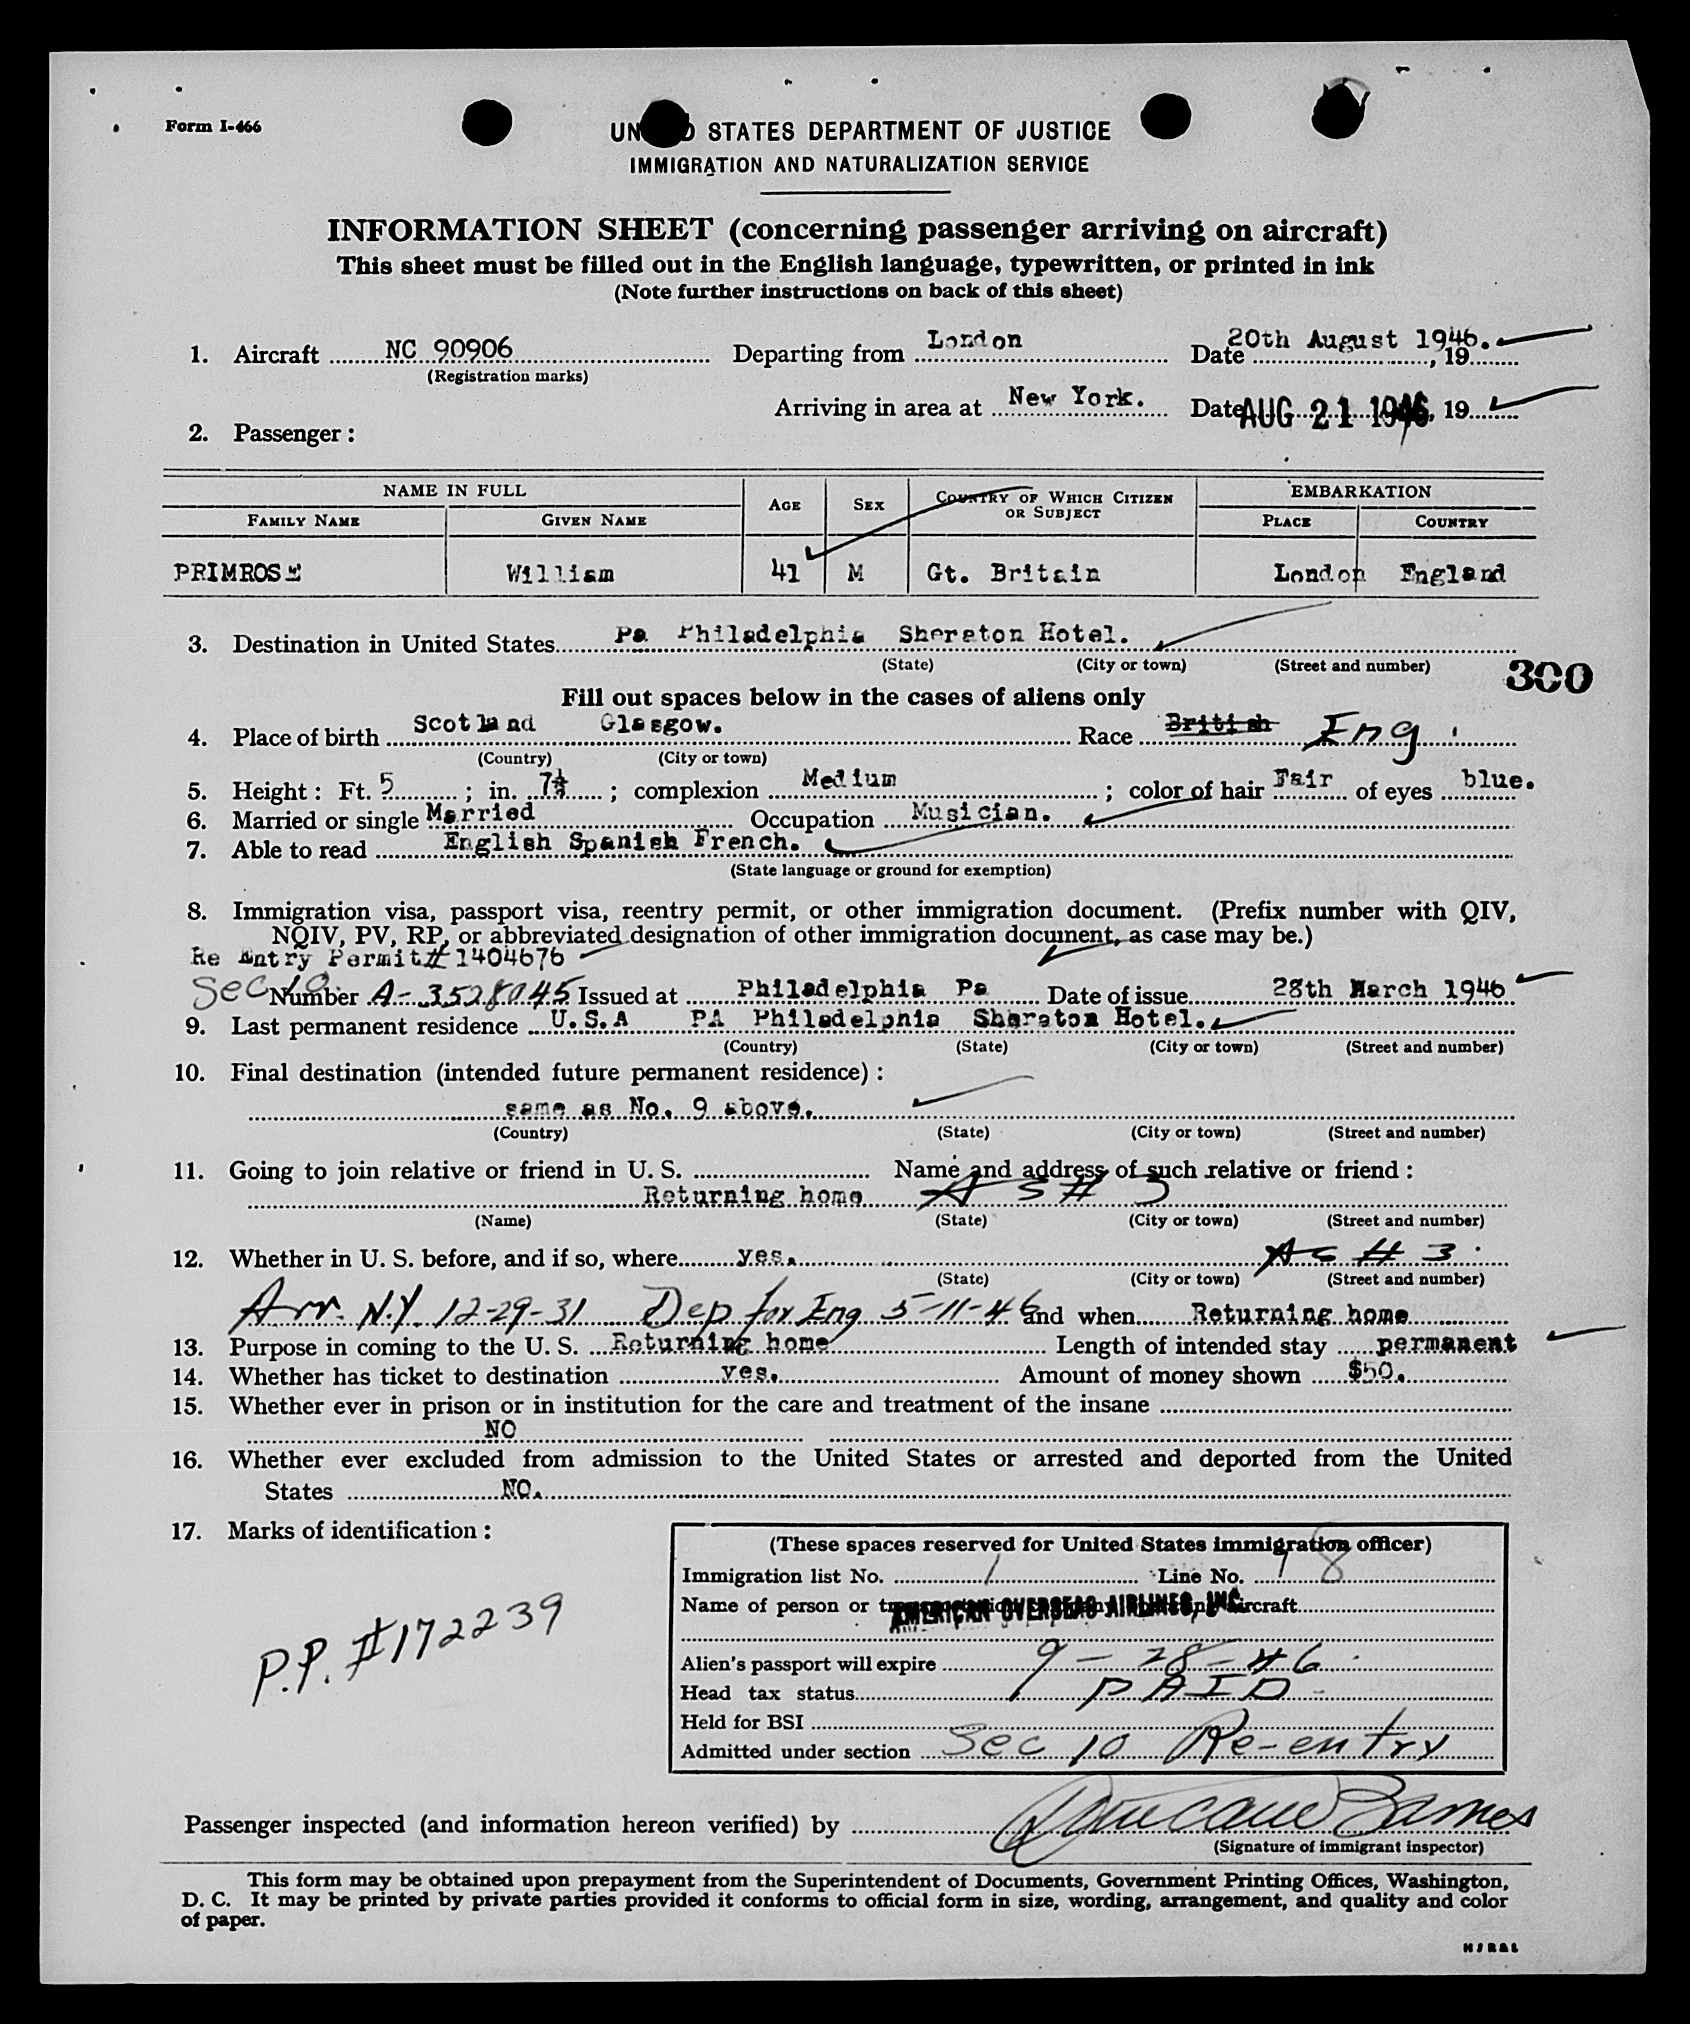 Form I-466
UNITED STATES DEPARTMENT OF JUSTICE
IMMIGRATION AND NATURALIZATION SERVICE
INFORMATION SHEET (concerning passenger arriving on aircraft)
This sheet must be filled out in the English language, typewritten, or printed in ink
(Note further instructions on back of this sheet)
1. Aircraft NC 90906 Departing from London Date 20th August 1946. , 19
(Registration marks)
Arriving in area at New York. Date AUG 21 1946 , 19
2. Passenger :
NAME IN FULL AGE SEX COUNTRY OF WHICH CITIZEN OR SUBJECT EMBARKATION
FAMILY NAME GIVEN NAME PLACE COUNTRY
PRIMROSE William 41 M Gt. Britain London England
3. Destination in United States Pa Philadelphia Sheraton Hotel.
(State) (City or town) (Street and number)
300
Fill out spaces below in the cases of aliens only
4. Place of birth Scotland Glasgow. Race British Eng.
(Country) (City or town)
5. Height : Ft. 5 ; in. 7½ ; complexion Medium ; color of hair Fair of eyes blue.
6. Married or single Married Occupation Musician.
7. Able to read English Spanish French.
(State language or ground for exemption)
8. Immigration visa, passport visa, reentry permit, or other immigration document. (Prefix number with QIV,
NQIV, PV, RP, or abbreviated designation of other immigration document, as case may be.)
Re Entry Permit# 1404676
Sec 10. Number A-3528045 Issued at Philadelphia Pa Date of issue 28th March 1946
9. Last permanent residence U.S.A PA Philadelphia Sheraton Hotel.
(Country) (State) (City or town) (Street and number)
10. Final destination (intended future permanent residence) :
same as No. 9 above.
(Country) (State) (City or town) (Street and number)
11. Going to join relative or friend in U. S. Name and address of such relative or friend :
Returning home AS # 3
(Name) (State) (City or town) (Street and number)
12. Whether in U. S. before, and if so, where yes. AS # 3.
(State) (City or town) (Street and number)
Arr. N.Y. 12-29-31 Dep for Eng 5-11-46 and when Returning home
13. Purpose in coming to the U. S. Returning home Length of intended stay permanent
14. Whether has ticket to destination yes. Amount of money shown $50.
15. Whether ever in prison or in institution for the care and treatment of the insane
NO
16. Whether ever excluded from admission to the United States or arrested and deported from the United
States NO.
17. Marks of identification :
P.P. #172239
(These spaces reserved for United States immigration officer)
Immigration list No. 1 Line No. 18
Name of person or transportation company operating aircraft
AMERICAN OVERSEAS AIRLINES, INC.
Alien's passport will expire 9-28-46
Head tax status PAID
Held for BSI
Admitted under section Sec 10 Re-entry
Passenger inspected (and information hereon verified) by
(Signature of immigrant inspector)
This form may be obtained upon prepayment from the Superintendent of Documents, Government Printing Offices, Washington,
D. C. It may be printed by private parties provided it conforms to official form in size, wording, arrangement, and quality and color
of paper.